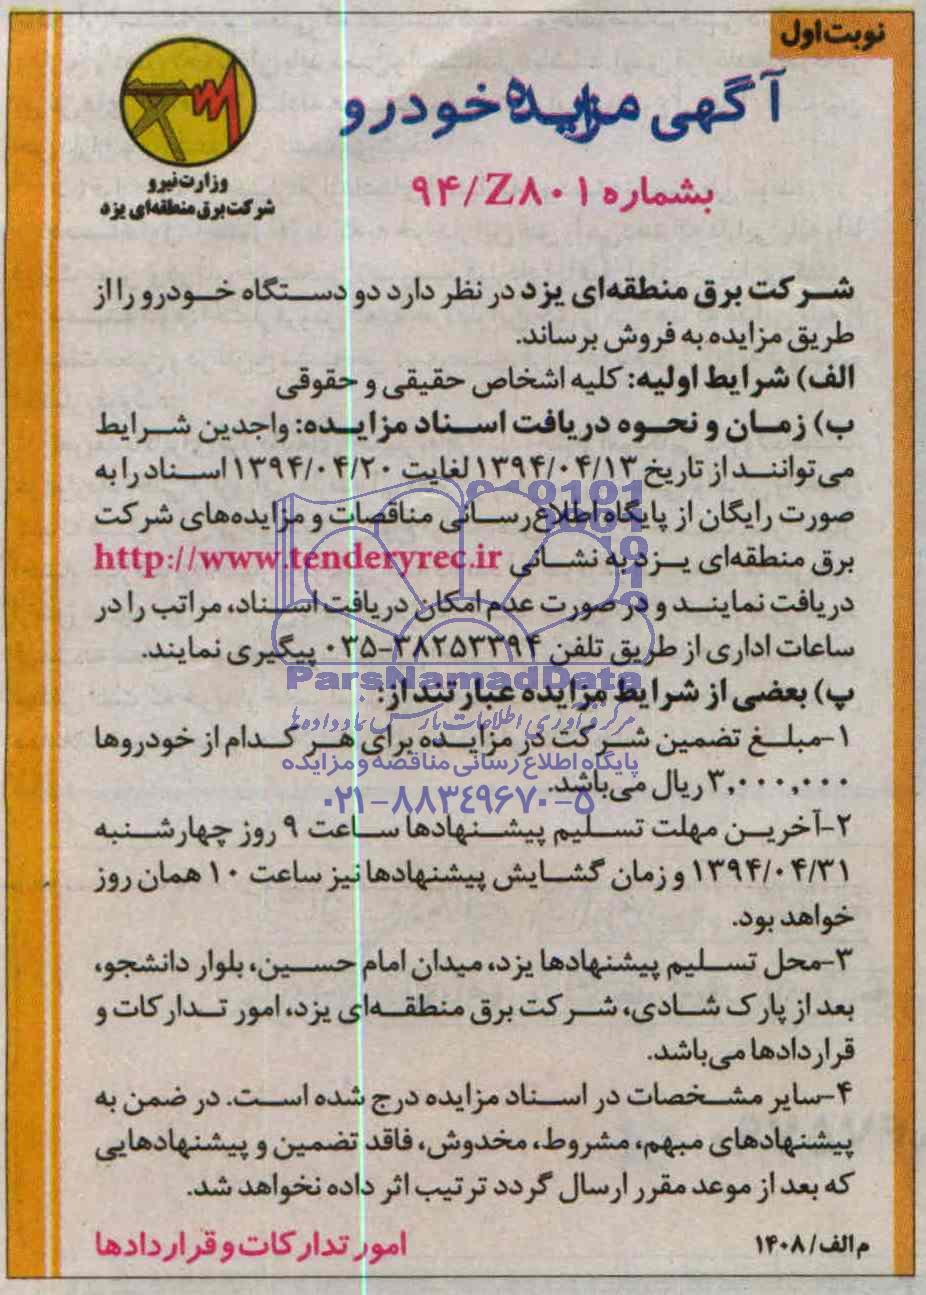 نوبت اول
آگهی مزایده خودرو
بشماره ۹۴/Z۸۰۱
وزارت نیرو
شرکت برق منطقه‌ای یزد
شرکت برق منطقه‌ای یزد در نظر دارد دو دستگاه خودرو را از
طریق مزایده به فروش برساند.
الف) شرایط اولیه: کلیه اشخاص حقیقی و حقوقی
ب) زمان و نحوه دریافت اسناد مزایده: واجدین شرایط
می‌توانند از تاریخ ۱۳۹۴/۰۴/۱۳ لغایت ۱۳۹۴/۰۴/۲۰ اسناد را به
صورت رایگان از پایگاه اطلاع‌رسانی مناقصات و مزایده‌های شرکت
برق منطقه‌ای یزد به نشانی http://www.tenderyrec.ir
دریافت نمایند و در صورت عدم امکان دریافت اسناد، مراتب را در
ساعات اداری از طریق تلفن ۳۸۲۵۳۳۹۴-۰۳۵ پیگیری نمایند.
ParsNamadData
پ) بعضی از شرایط مزایده عبارتند از:
مرکز فرآوری اطلاعات پارس نماد داده‌ها
۱-مبلغ تضمین شرکت در مزایده برای هر کدام از خودروها
پایگاه اطلاع رسانی مناقصه و مزایده
۳,۰۰۰,۰۰۰ ریال می‌باشد.
۰۲۱-۸۸۳۴۹۶۷۰-۵
۲-آخرین مهلت تسلیم پیشنهادها ساعت ۹ روز چهارشنبه
۱۳۹۴/۰۴/۳۱ و زمان گشایش پیشنهادها نیز ساعت ۱۰ همان روز
خواهد بود.
۳-محل تسلیم پیشنهادها یزد، میدان امام حسین، بلوار دانشجو،
بعد از پارک شادی، شرکت برق منطقه‌ای یزد، امور تدارکات و
قراردادها می‌باشد.
۴-سایر مشخصات در اسناد مزایده درج شده است. در ضمن به
پیشنهادهای مبهم، مشروط، مخدوش، فاقد تضمین و پیشنهادهایی
که بعد از موعد مقرر ارسال گردد ترتیب اثر داده نخواهد شد.
م الف/۱۴۰۸
امور تدارکات و قراردادها